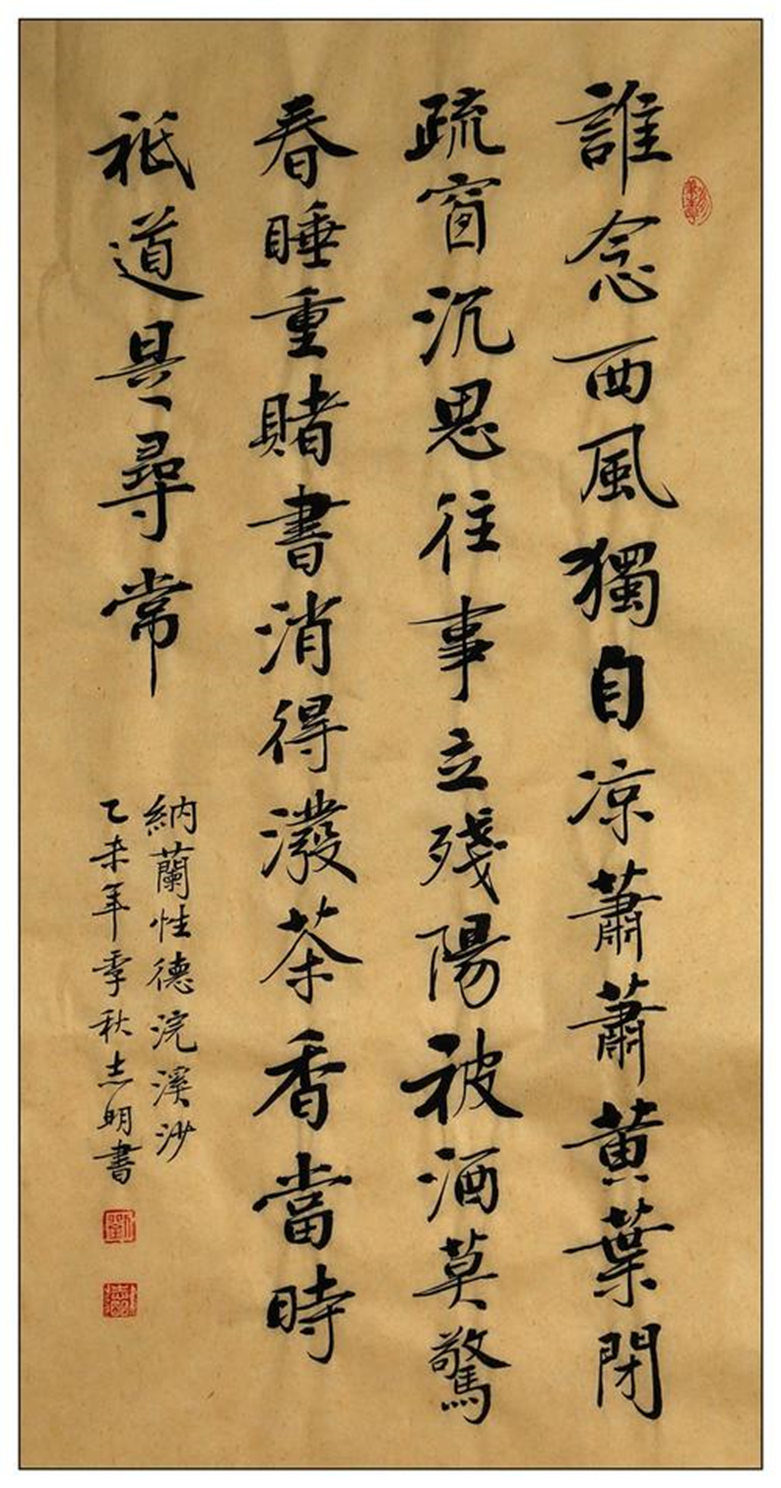 誰念西風獨自凉蕭蕭黄葉閉
疏窗沉思往事立殘陽被酒莫驚
春睡重賭書消得潑茶香當時
祗道是尋常
納蘭性德浣溪沙
乙未年季秋志明書